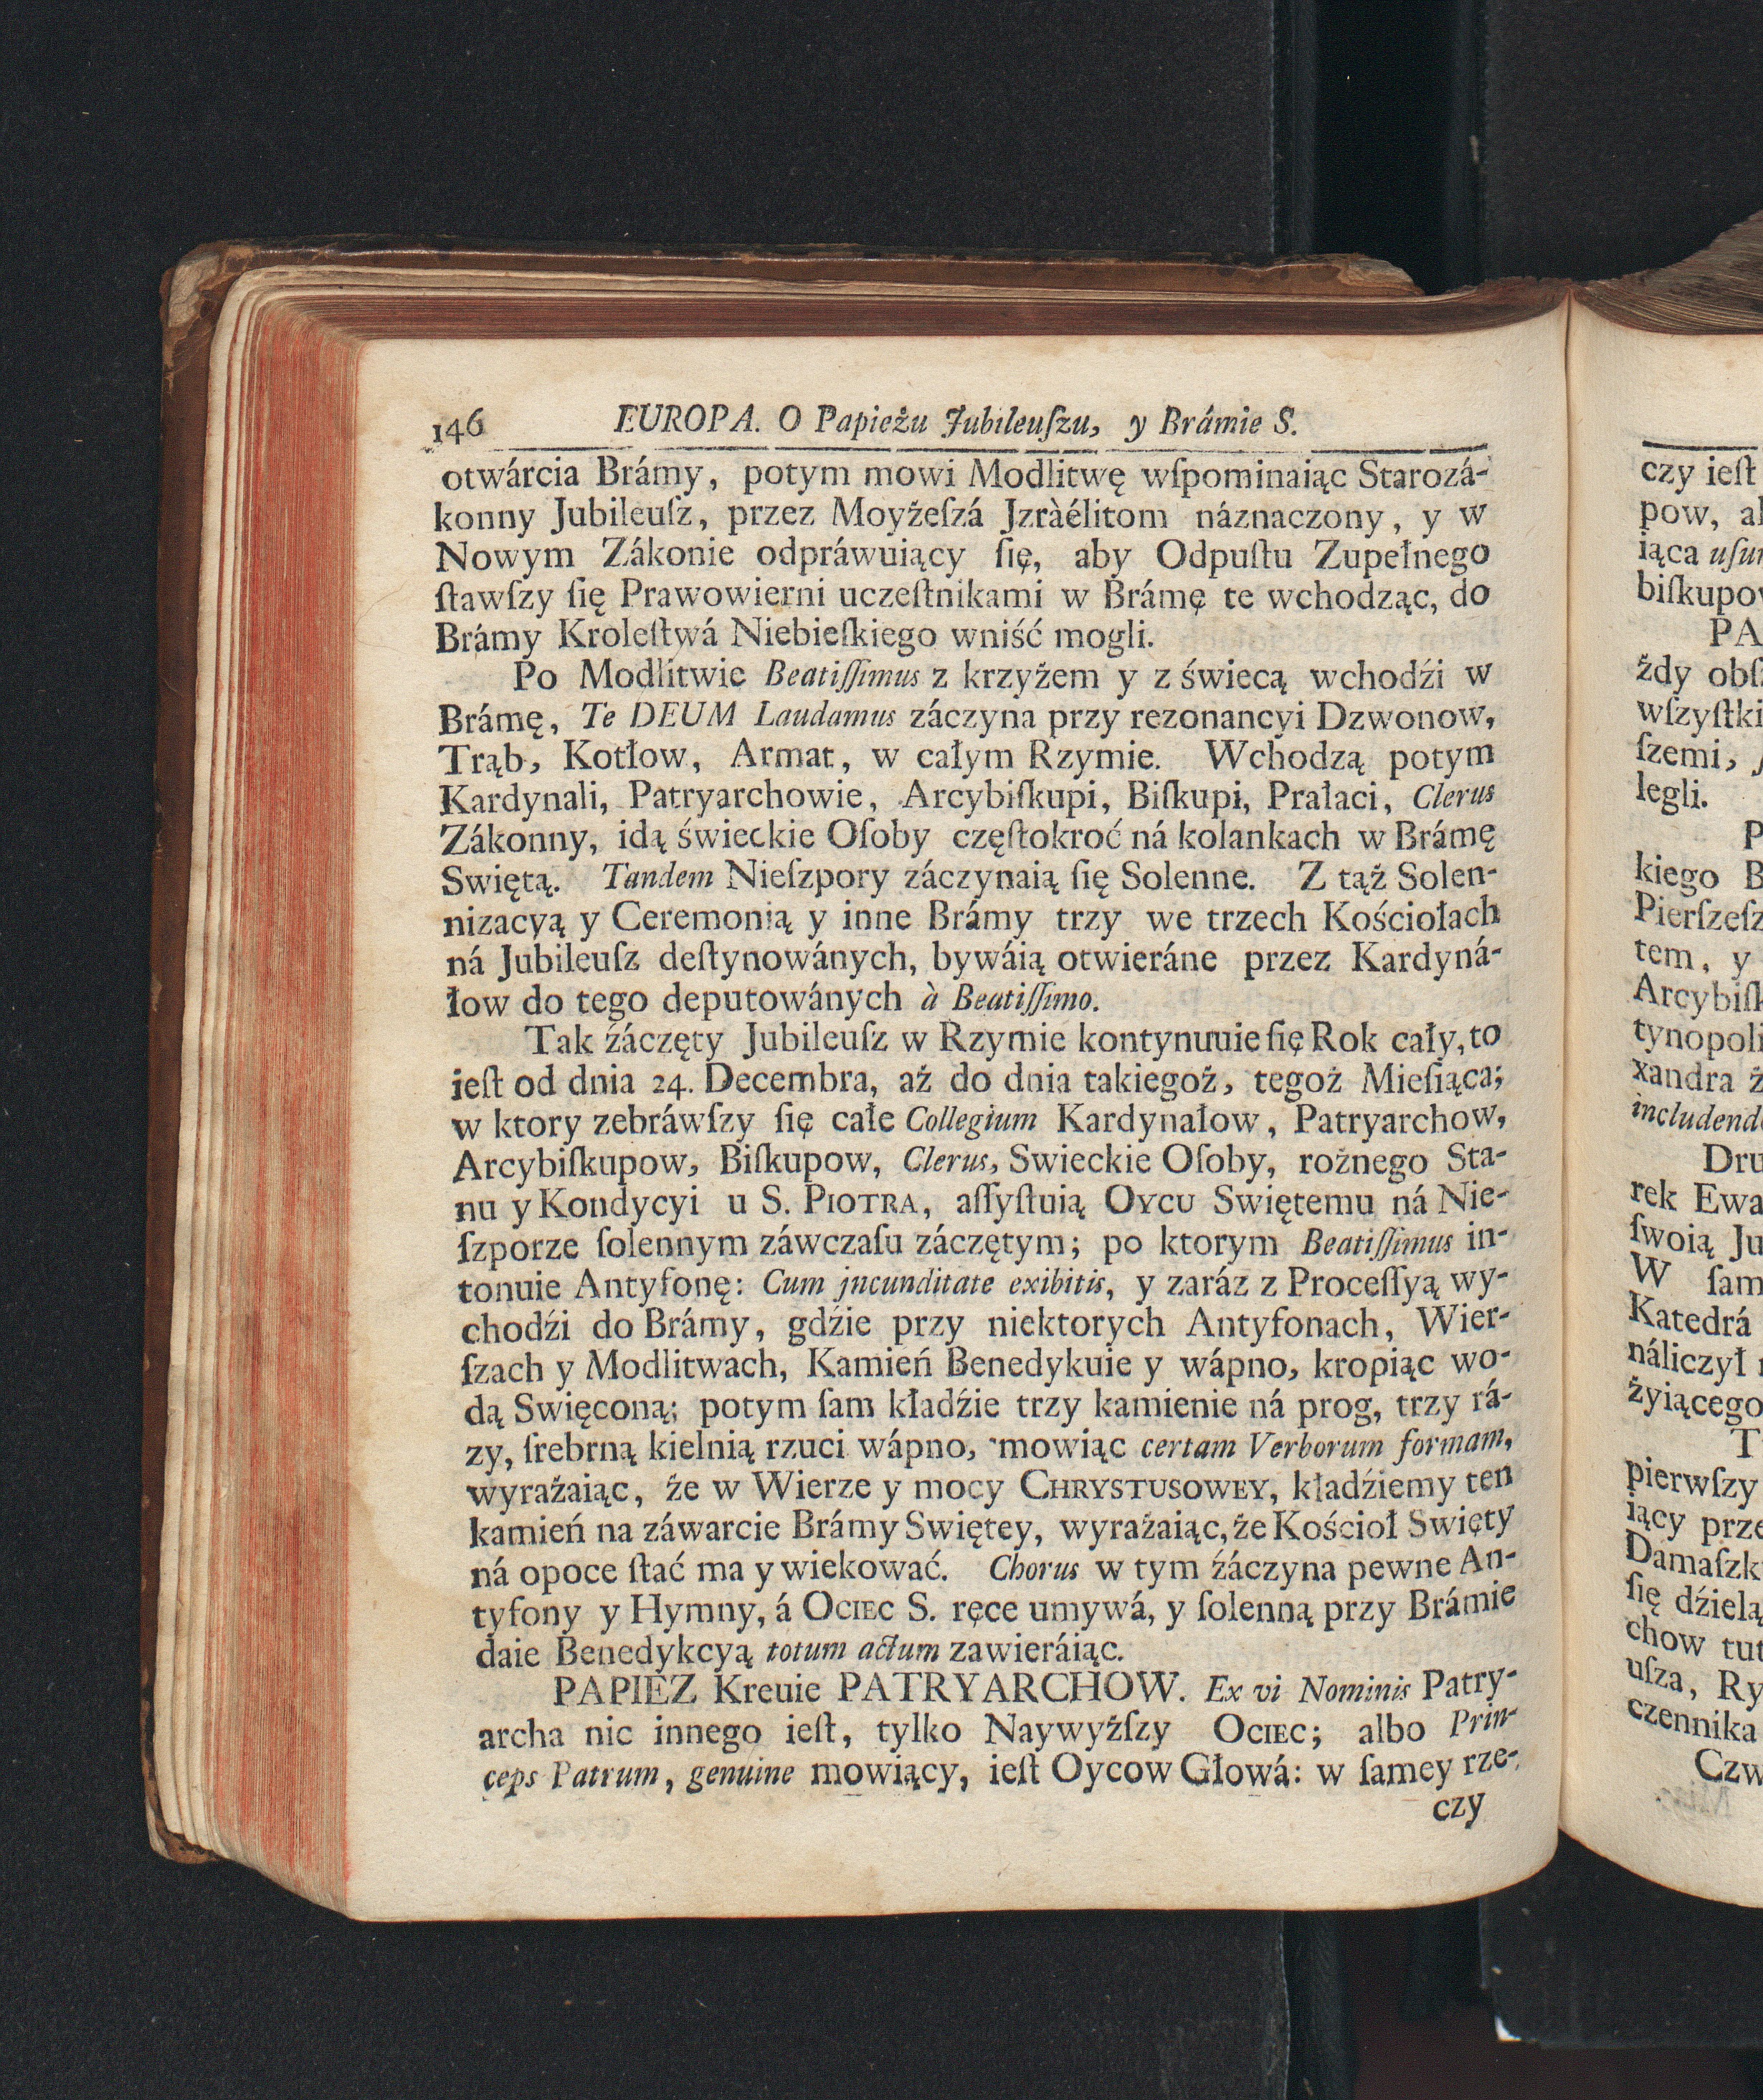 146 EUROPA. O Papieżu Jubileuſzu, y Brámie S.
otwárcia Brámy, potym mowi Modlitwę wſpominaiąc Starozá-
konny Jubileuſz, przez Moyżeſzá Jzràélitom náznaczony, y w
Nowym Zákonie odpráwuiący ſię, aby Odpuſtu Zupełnego
ſtawſzy ſię Prawowierni uczeſtnikami w Brámę te wchodząc, do
Brámy Kroleſtwá Niebieſkiego wniść mogli.
Po Modlitwie Beatiſſimus z krzyżem y z świecą wchodźi w
Brámę, Te DEUM Laudamus záczyna przy rezonancyi Dzwonow,
Trąb, Kotłow, Armat, w całym Rzymie. Wchodzą potym
Kardynali, Patryarchowie, Arcybiſkupi, Biſkupi, Prałaci, Clerus
Zákonny, idą świeckie Oſoby częſtokroć ná kolankach w Brámę
Swiętą. Tandem Nieſzpory záczynaią ſię Solenne. Z tąż Solen-
nizacyą y Ceremonią y inne Brámy trzy we trzech Kościołach
ná Jubileuſz deſtynowánych, bywáią otwieráne przez Kardyná-
łow do tego deputowánych à Beatiſſimo.
Tak źáczęty Jubileuſz w Rzymie kontynuuie ſię Rok cały, to
ieſt od dnia 24. Decembra, aż do dnia takiegoż, tegoż Mieſiąca;
w ktory zebráwſzy ſię całe Collegium Kardynałow, Patryarchow,
Arcybiſkupow, Biſkupow, Clerus, Swieckie Oſoby, rożnego Sta-
nu y Kondycyi u S. PIOTRA, aſſyſtuią OYCU Swiętemu ná Nie-
ſzporze ſolennym záwczaſu záczętym; po ktorym Beatiſſimus in-
tonuie Antyfonę: Cum jncunditate exibitis, y zaráz z Proceſſyą wy-
chodźi do Brámy, gdźie przy niektorych Antyfonach, Wier-
ſzach y Modlitwach, Kamień Benedykuie y wápno, kropiąc wo-
dą Swięconą; potym ſam kładźie trzy kamienie ná prog, trzy rá-
zy, ſrebrną kielnią rzuci wápno, mowiąc certam Verborum formam,
wyrażaiąc, że w Wierze y mocy CHRYSTUSOWEY, kładźiemy ten
kamień na záwarcie Brámy Swiętey, wyrażaiąc, że Kościoł Swięty
ná opoce ſtać ma y wiekować. Chorus w tym źáczyna pewne An-
tyfony y Hymny, á OCIEC S. ręce umywá, y ſolenną przy Brámie
daie Benedykcyą totum actum zawieráiąc.
PAPIEZ Kreuie PATRYARCHOW. Ex vi Nominis Patry-
archa nic innego ieſt, tylko Naywyżſzy OCIEC; albo Prin-
ceps Patrum, genuine mowiący, ieſt Oycow Głowá: w ſamey rze-
czy
czy ieſt
pow, 
iąca
biſkupo
żdy
wſzyſtki
ſzemi,
legli.
kiego
Pierſzeſz
tem, y
Arcybiſk
tynopoli
xandra
Dru
rek Ewa
ſwoią Ju
W ſam
Katedrá
náliczył
żyiącego
pierwſzy
iący prze
Damaſzk
ſię dźielą
chow tut
uſza, Ry
czennika
Czw